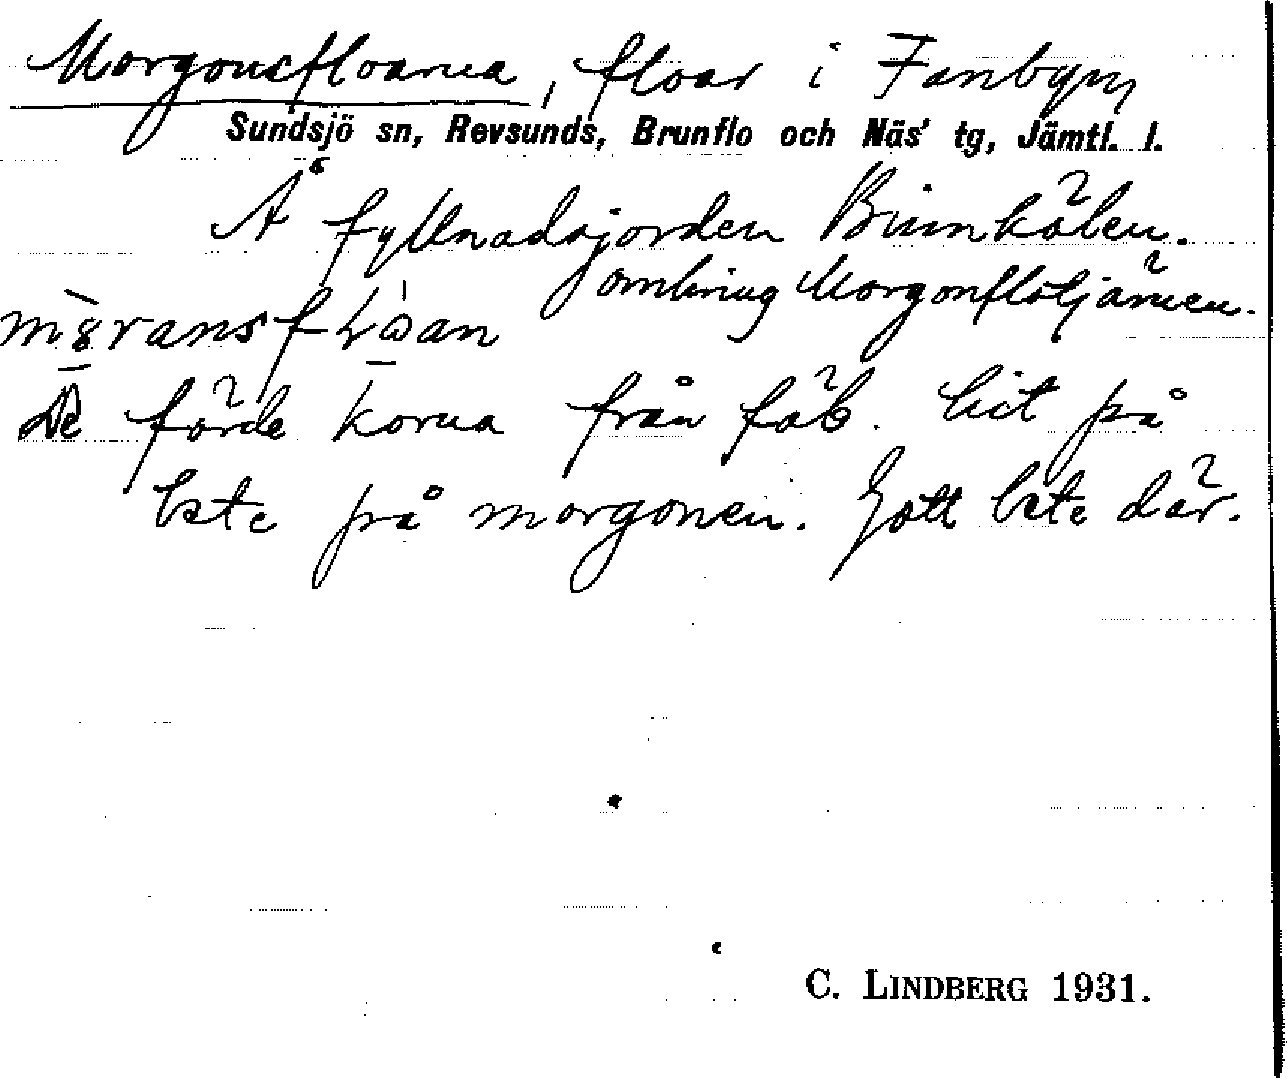 Morgonsfloarna, floar i Fanbyn,
Sundsjö sn, Revsunds, Brunflo och Näs' tg, Jämtl. l.
Å fyllnadsjorden Binnkölen.
omkring Morgonflötjärnen.
De förde korna från fäb. hit på
bete på morgonen. Gott bete där.
C. LINDBERG 1931.